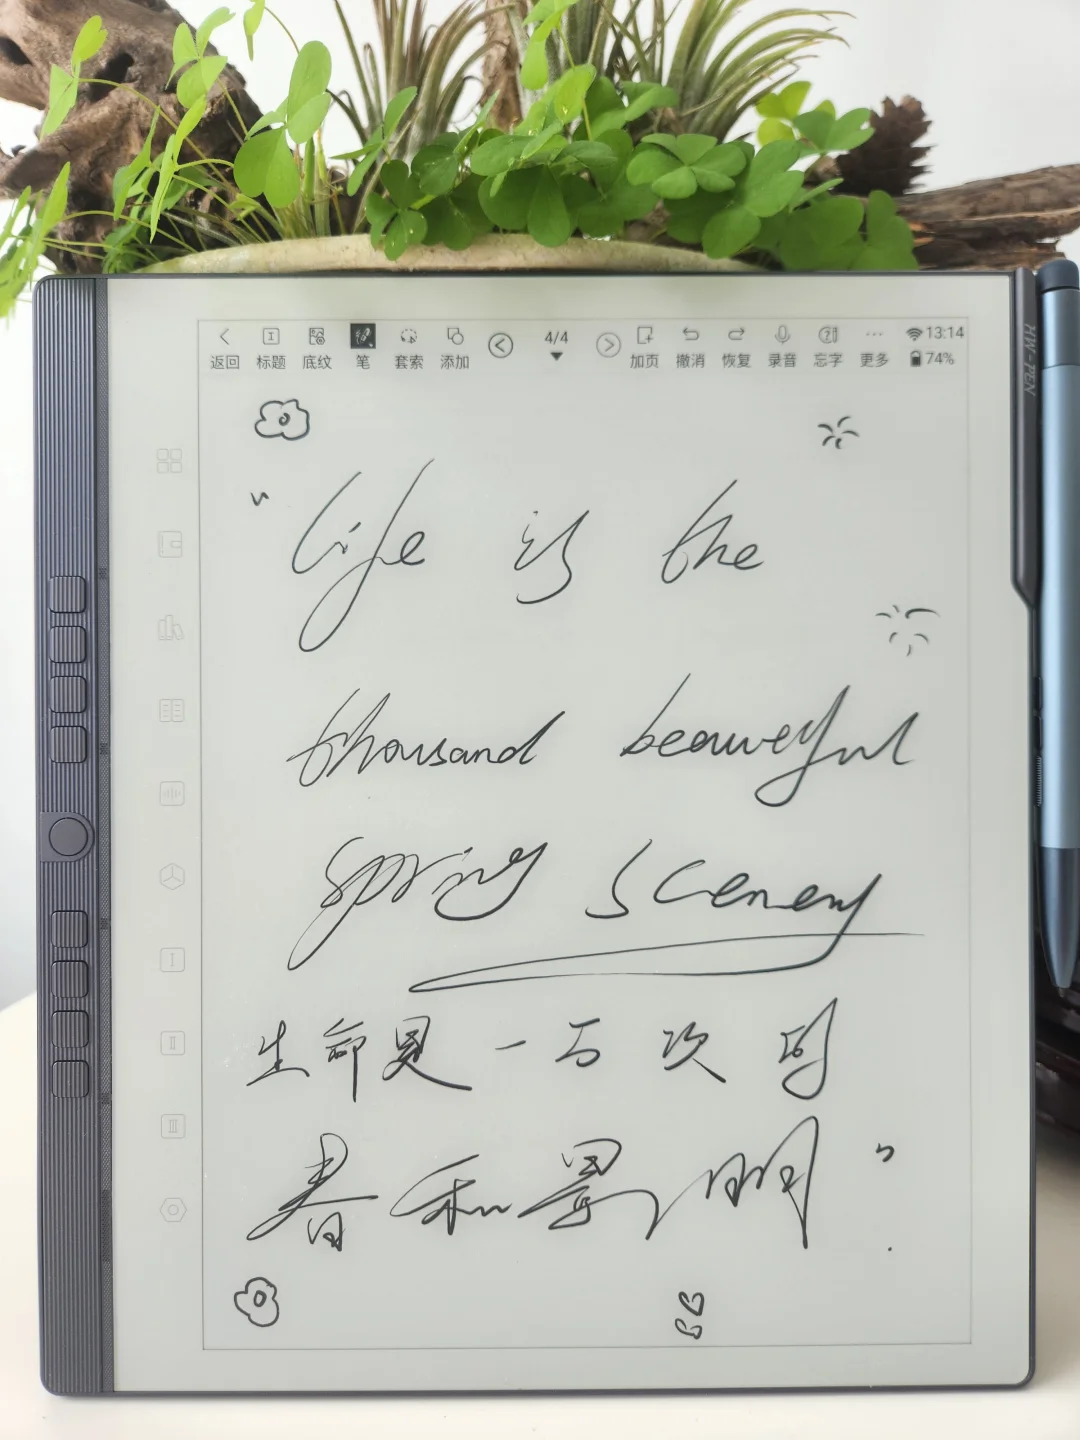 返回 标题 底纹 笔 套索 添加 4/4 加页 撤消 恢复 录音 忘字 更多 13:14 74%
HW-PEN
"Life is the
thousand beautiful
spring scenery
生命是一万次的
春和景明"